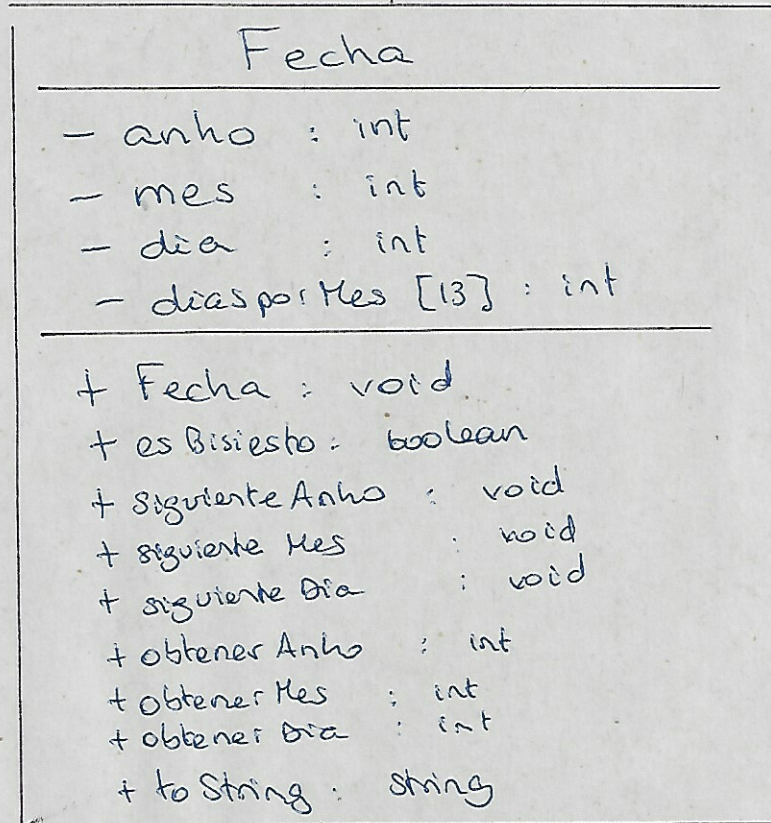 Fecha
- anho : int
- mes : int
- dia : int
- diasporMes [13] : int
+ Fecha : void
+ esBisiesto : boolean
+ siguienteAnho : void
+ siguiente Mes : void
+ siguiente Dia : void
+ obtener Anho : int
+ obtenerMes : int
+ obtener Dia : int
+ to String : string